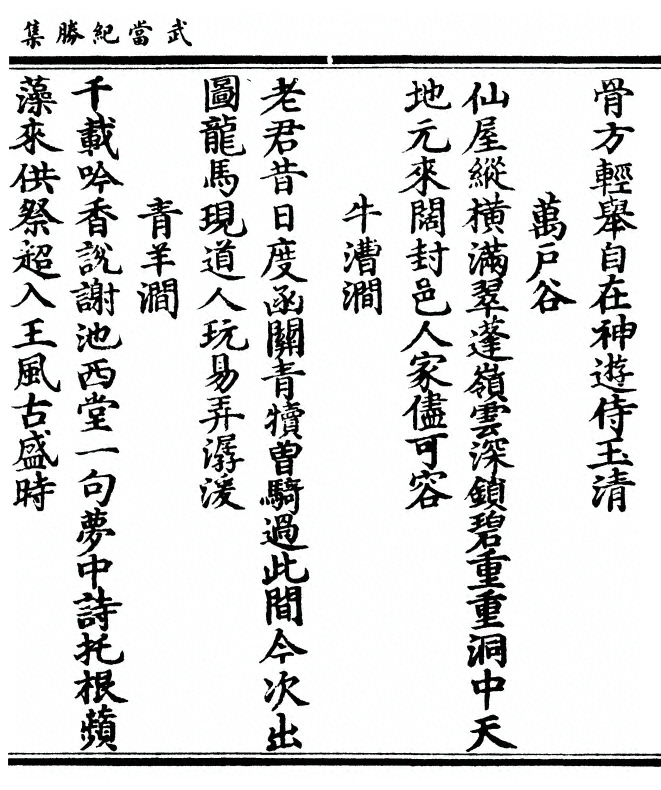 武當紀勝集
骨方輕舉自在神遊侍玉清
萬戶谷
仙屋縱橫滿翠蓬嶺雲深鎖碧重重洞中天
地元來闊封邑人家儘可容
牛漕澗
老君昔日度函關青犢曽騎過此間今次出
圖龍馬現道人玩易弄潺湲
青羊澗
千載吟香說謝池西堂一句夢中詩托根蘋
藻來供祭超入王風古盛時